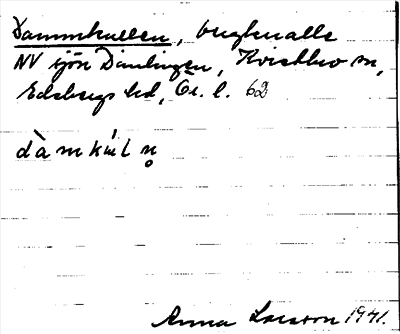 Dammkullen, bergknalle
NV sjön Dömlingen, Kvistbro sn,
Edsbergs hd, Ör. l. 62
dàmkúlṇ
Anna Larsson 1941.